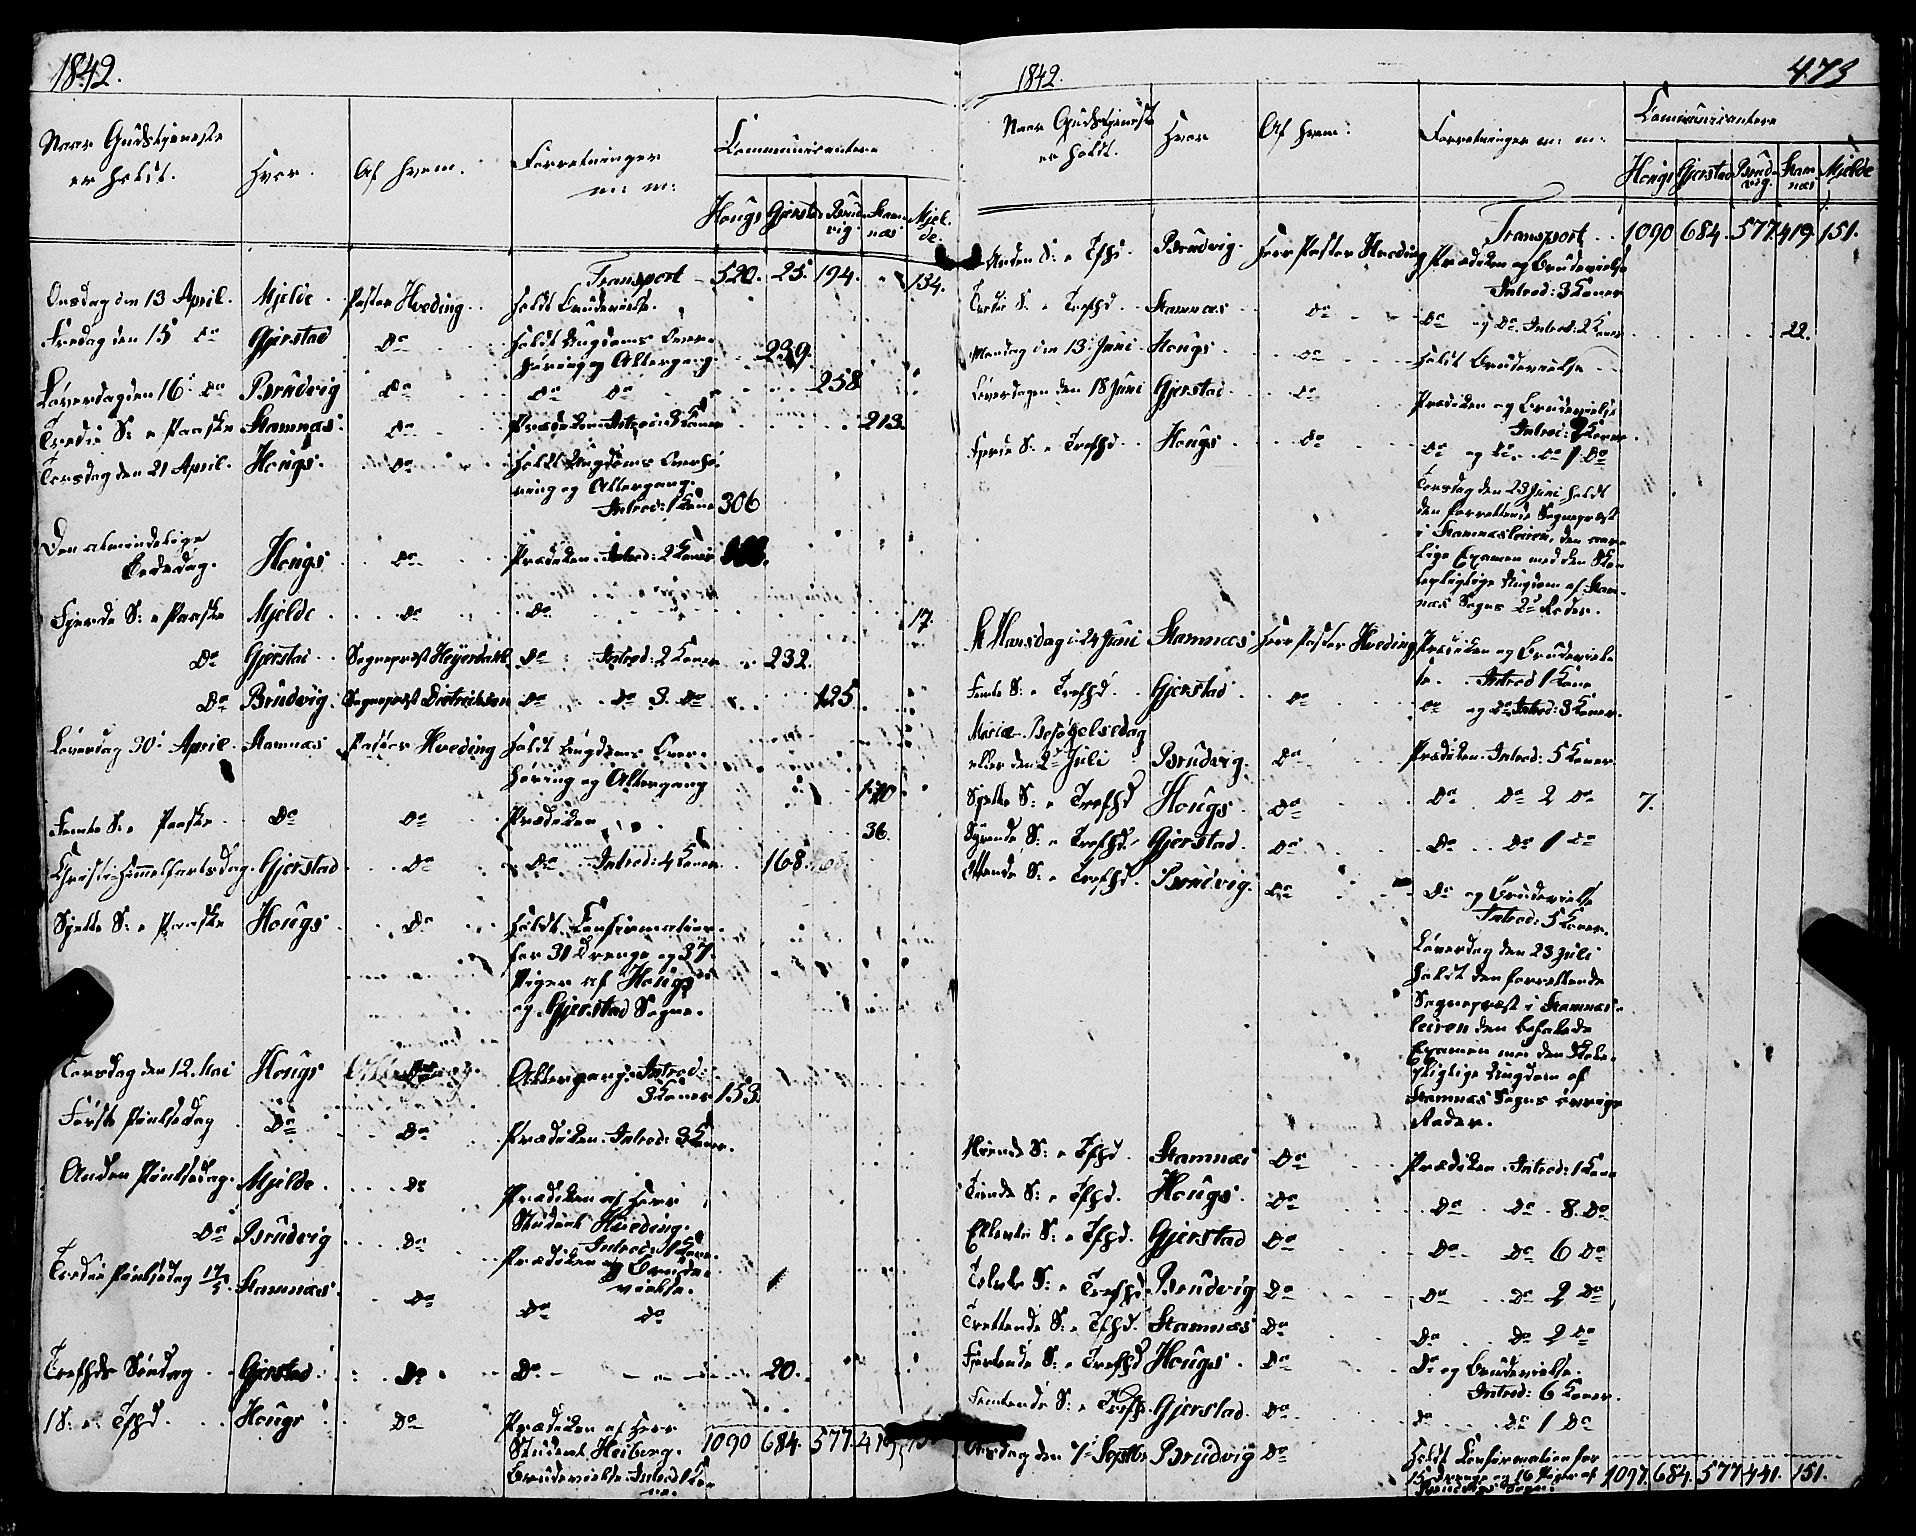 1842.
Naar Gudstjeneste er holdt. Hvor. Af hvem. Forretninger m: m: Communicantere
Hougs Gjerstad Brudvig Stamnæs Mjelde
Transport 520. 25. 194. " 134.
Onsdag den 13 April. Mjelde Pastor Hveding Holdt Brudevielse.
Fredag den 15 do Gjerstad Do Holdt Ungdoms Over-
høring og Altergang. 239.
Løverdag den 16 do Brudvig Do Do Do 258
Tredie S: e Paaske Stamnæs Do Prædiken. Introd: 3 Koner 213.
Torsdag den 21 April. Hougs. Do Holdt Ungdoms Overhø-
ring og Altergang.
Introd: 1 Kone 306
Den almindelige
Bededag. Hougs Do Prædiken. Introd: 2 Koner
Fjerde S: e Paaske Mjelde Do Do 17.
Do Gjerstad Sognepræst Heyerdahl Do Introd: 2 Koner 232.
Do Brudvig. Sognepræst Dietrichson Do Do 3 Do 125.
Løverdag 30 April. Stamnæs Pastor Hveding Holdt Ungdoms Over-
høring og Altergang 170
Femte S: e Paaske Do Do Prædiken 36.
Christi Himmelfartsdag. Gjerstad Do Do Introd: 4 Koner 168.
Sjette S: e Paaske Hougs Do Holdt Confirmation
for 31 Drenge og 37
Piger af Hougs
og Gjerstad Sogne.
Torsdag den 12. Mai Hougs Do Altergang. Introd:
3 Koner 153.
Første Pintsedag Do Do Prædiken. Introd: 3 Koner.
Anden Pintsedag. Mjelde. Do Prædiken af Herr
Student Hveding.
Introd: 1 Kone.
Do Brudvig Do Prædiken og Brude-
vielse.
Tredie Pintsedag 17/5 Stamnæs. Do Do Do
Trefhds Søndag Gjerstad Do Do 20.
1 S: e. Tfhd. Hougs Do Prædiken af Herr
Student Heiberg.
Brudevielse. Introd: 1 Ko-
ne.
1090 684. 577. 419.
1842. 473
Naar Gudstjeneste er holdt. Hvor Af hvem: Forretninger m: m: Communicantere
Hougs Gjerstad Brudvig. Stamnæs Mjelde
Transport 1090 684. 577. 419. 151.
Anden S: e Tfhd. Brudvig. Herr Pastor Hveding Prædiken og Brudevielse
Introd: 3 Koner
Tredie S: e Trefhd. Stamnæs Do Do og Do. Introd: 2 Koner 22.
Mandag den 13 Juni Hougs. Do Holdt Brudevielse
Løverdagen den 18 Juni Gjerstad Do Prædiken og Brudevielse
Introd: 2 Koner
Fjerde S: e Trefhd. Hougs Do Do og Do. Do 1 Do
Torsdag den 23 Juni holdt
den forrettende Sognepræst
i Stamnæsleiren, den aar-
lige Examen med den Sko-
lepligtige Ungdom af Stam-
næs Sogns 2de Roder.
St Hansdag: 24 Juni Stamnæs Herr Pastor Hveding Prædiken og Brudeviel-
se. Introd 1 Kone
Femte S: e Trefhd. Gjerstad Do Do og Do Introd: 3 Koner.
Mariæ Besøgelsedag
eller den 2 Juli Brudvig. Do Prædiken. Introd: 5 Koner.
Sjette S: e Trefhd Hougs Do Do Do 2 Do 7.
Syvende S: e Trefhd. Gjerstad. Do Do Do 1 Do
Ottende S: e Trefhd. Brudvig. Do Do og Brudevielse
Introd: 5 Koner.
Løverdag den 23 Juli
holdt den forrettende
Sognepræst i Stamnæs-
leiren den befalede
Examen med den Skole-
pligtige Ungdom af
Stamnæs Sogns øvrige
Roder.
Niende S: e Tfhd. Stamnæs Do Prædiken. Introd: 1 Kone
Tiende S: e Tfhd. Hougs. Do Do Do 8. Do
Ellevte S: e Tfhd. Gjerstad Do Do Do 6 Do
Tolvte S: e Trefhd Brudvig Do Do Do 2 Do
Trettende S: e Tfhd. Stamnæs Do Do Do 2 Do
Fjortende S: e Trefhd Hougs. Do Do og Brudevielse.
Introd: 6 Koner.
Femtende S: e Trefh. Gjerstad. Do Do Do 1 Do
Onsdag den 7 Septbr Brudvig Do Holdt Confirmation for
15 Drenge og 16 Piger af
Brudvigs Sogn.
1097. 684. 577. 441. 151.